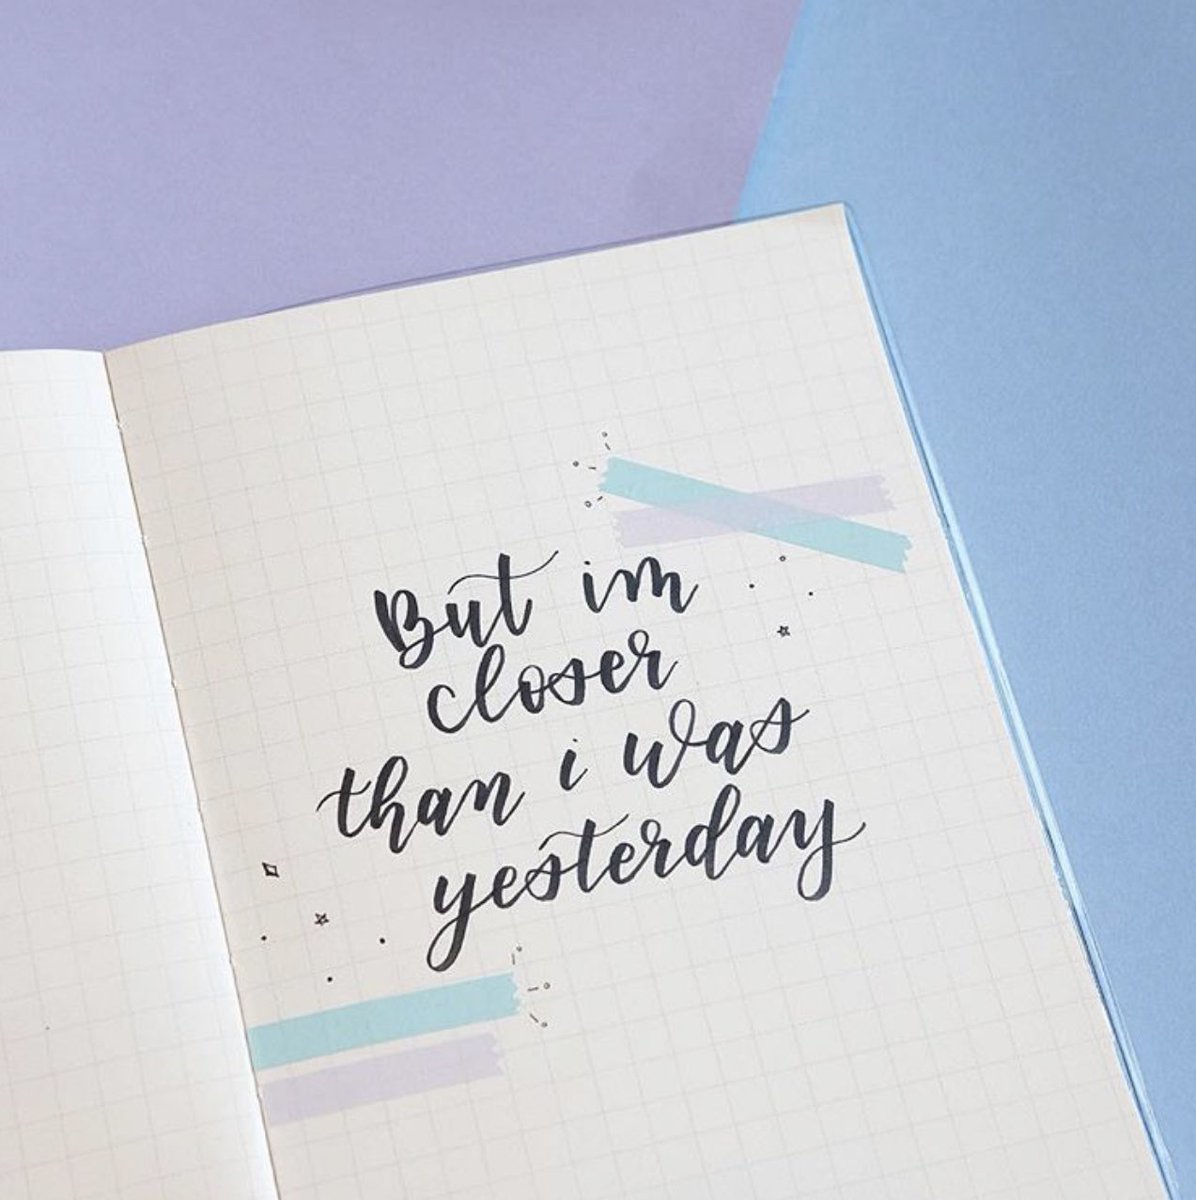 But im
closer
than i was
yesterday